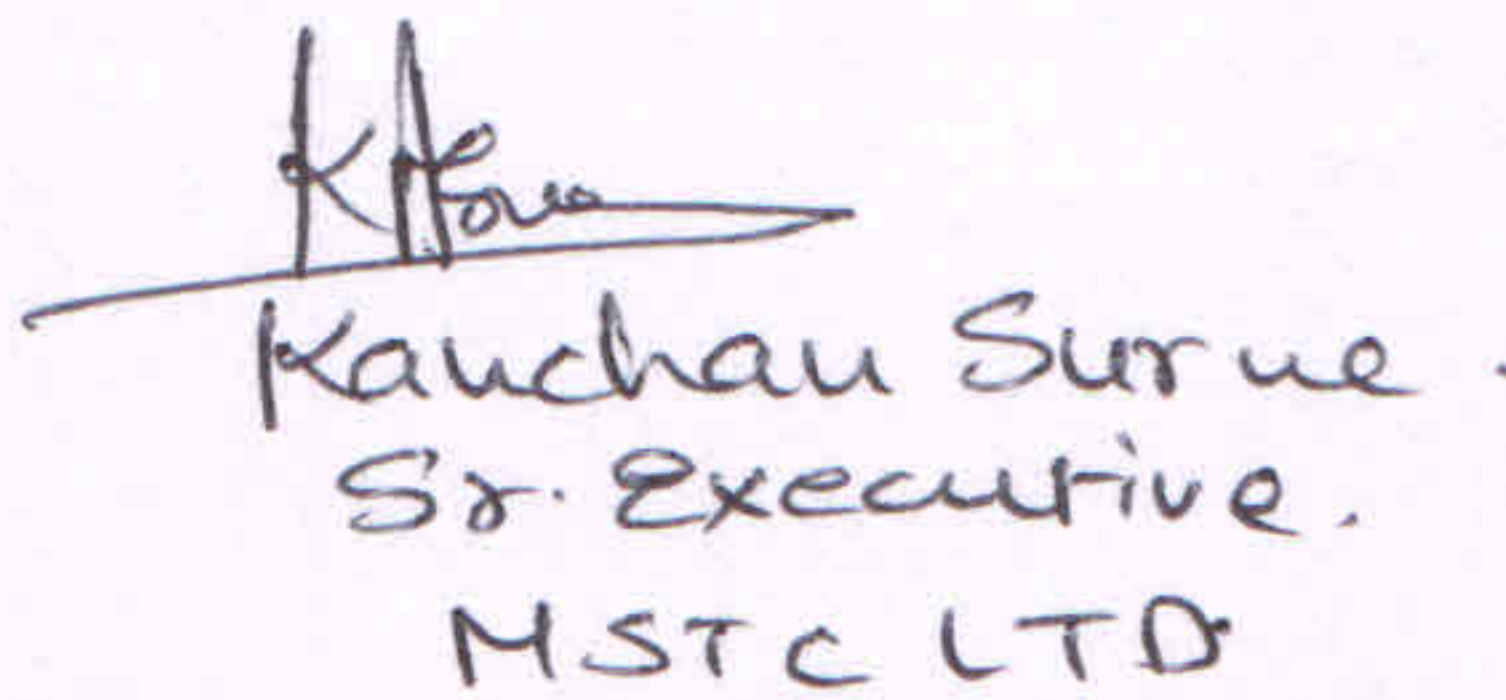 Kanchan Surve.
Sr. Executive.
MSTC LTD